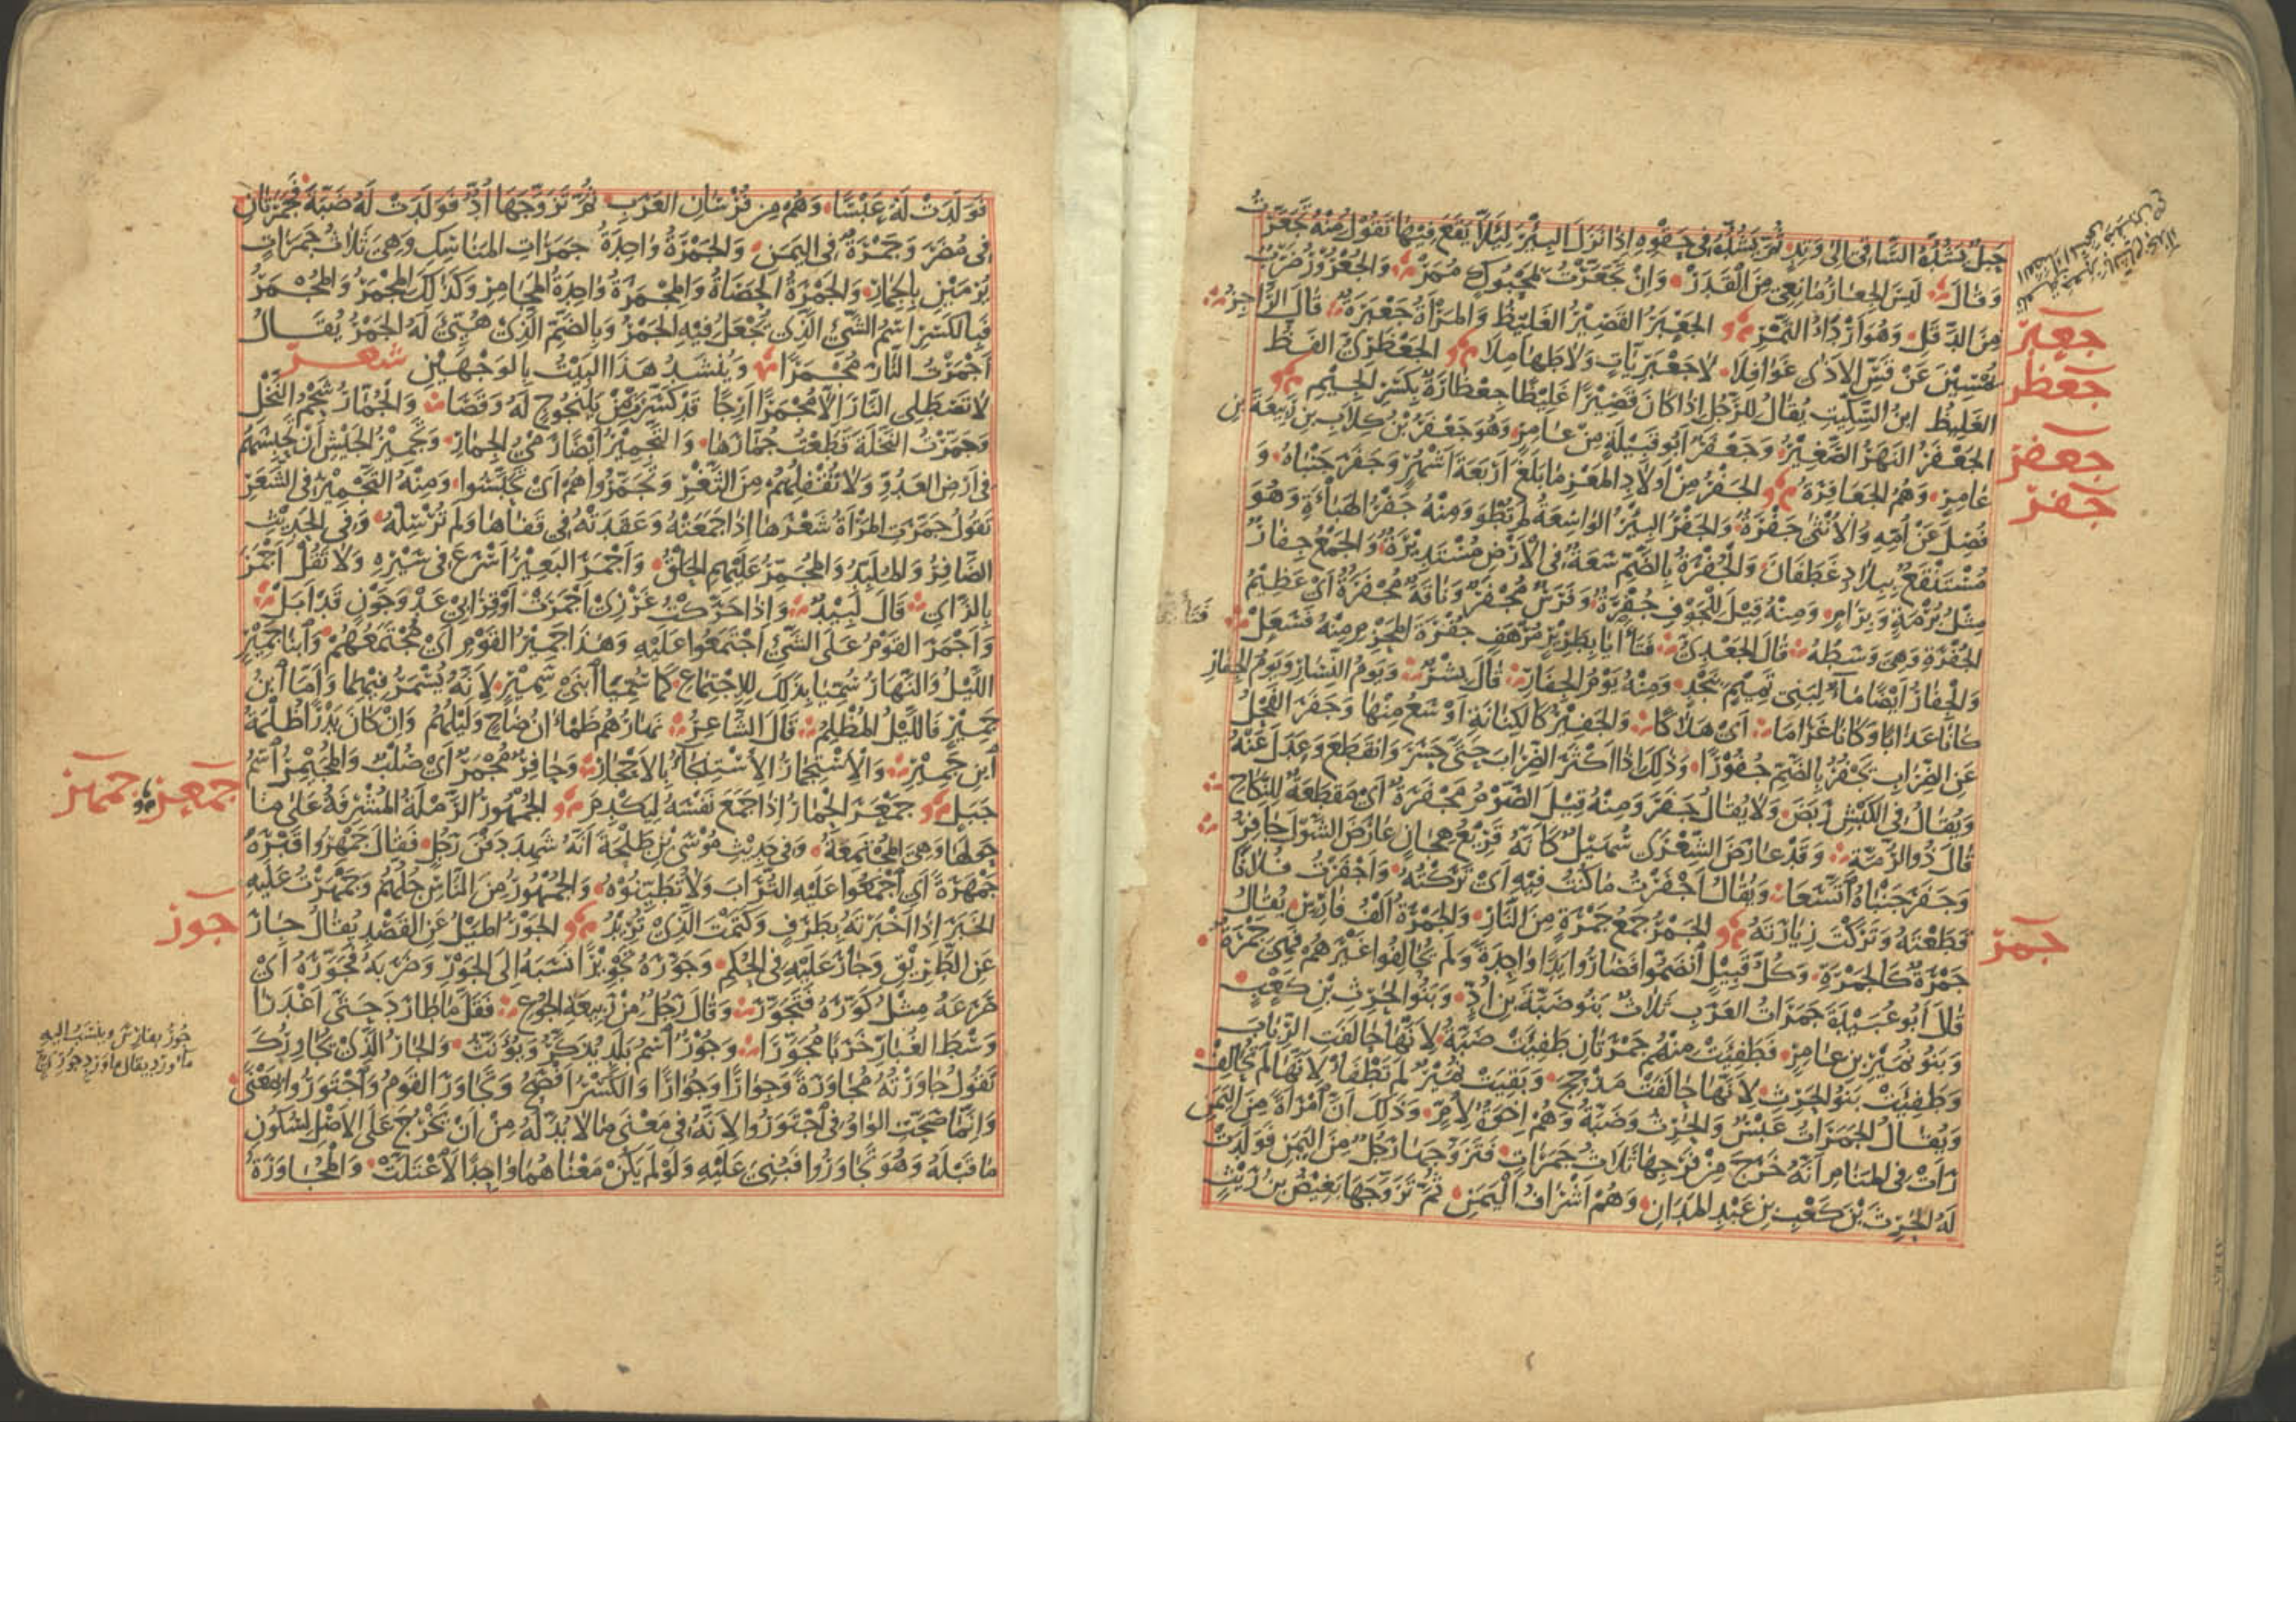 حبل يشده الساقى الى وتد ثم يشده فى حقوه اذا نزل البئر ليلا يقع فيها تقول منه تجعرت
وقال ليس الجعار مانعى من القدر وان تجعرت بمحبوك ممر والجعرور ضرب
من الدقل وهو اردا التمر الجعبر القصير الغليظ والمراة جعبرة قال الراجز
يمسين عن قس الاذى غوافلا لا جعبريات ولا طهاملا الجعظرى الفظ
الغليظ ابن السكيت يقال للرجل اذا كان قصيرا غليظا جعظارة بكسر الجيم
الجعفر النهر الصغير وجعفر ابو قبيلة من عامر وهو جعفر بن كلاب بن ربيعة بن
عامر وهم الجعافرة الجفر من اولاد المعز ما بلغ اربعة اشهر وجفر جنباه و
فصل عن امه والانثى جفرة والجفر البير الواسعة لم تطو ومنه جفر الهباة وهو
مستنقع ببلاد غطفان والجفرة بالضم سعة فى الارض مستديرة والجمع جفار
مثل برمة وبرام ومنه قيل للجوف جفرة وفرس مجفر وناقة مجفرة اى عظيم
الجفرة وهى وسطه قال الجعدى فتآيا بطرير مرهف جفرة المحزم منه فسعل
والجفار ايضا ماء لبنى تميم بنجد ومنه يوم الجفار قال بشر ويوم النسار ويوم الجفار
كانا عذابا وكانا غراما اى هلاكا والجفير كالكنانة اوسع منها وجفر الفحل
عن الضراب يجفر بالضم جفورا وذلك اذا اكثر الضراب حتى حسر وانقطع وعدل عنه
ويقال فى الكبش ربض ولا يقال جفر ومنه قيل الصوم مجفرة اى مقطعة للنكاح
قال ذو الرمة وقد عارض الشعرى سهيل كانه قريع هجان عارض الشول جافر
وجفر جنباه اتسعا ويقال اجفرت ما كنت فيه اى تركته واجفرت فلانا
قطعته وتركت زيارته الجمر جمع جمرة من النار والجمرة الف فارس يقال
جمرة كالجمرة وكل قبيل انضموا فصاروا يدا واحدة ولم يحالفوا غيرهم فهى جمرة
قال ابو عبيدة جمرات العرب ثلاث بنو ضبة بن اد وبنو الحرث بن كعب
وبنو نمير بن عامر فطفيت منهم جمرتان طفيت ضبة لانها حالفت الرباب
وطفيت بنو الحرث لانها حالفت مذحج وبقيت نمير لم تطفا لانها لم تحالف
ويقال الجمرات عبس والحرث وضبة وهم اخوة لام وذلك ان امراة من اليمن
رات فى المنام انه خرج من فرجها ثلاث جمرات فتزوجها رجل من اليمن فولدت
له الحرث بن كعب بن عبد المدان وهم اشراف اليمن ثم تزوجها بغيض بن ريث
جعبر
جعظر
جعفر
جفر
جمر
فولدت له عبسا وهم من فرسان العرب ثم تزوجها اد فولدت له ضبة فجمرتان
فى مضر وجمرة فى اليمن والجمرة واحدة جمرات المناسك وهى ثلاث جمرات
يرمين بالجمار والجمرة الحصاة والمجمرة واحدة المجامر وكذلك المجمر والمجمر
فبالكسر اسم الشئ الذى يجعل فيه الجمر وبالضم الذى هيئ له الجمر يقال
اجمرت النار مجمرا وينشد هذا البيت بالوجهين شعر
لا تصطلى النار الا مجمرا ارجا قد كسرت من يلنجوج له وقصا والجمار شحم النخل
وجمرت النخلة قطعت جمارها والتجمير ايضا رمى الجمار وتجمير الجيش ان تحبسهم
فى ارض العدو ولا تقفلهم من الثغر وتجمروا هم اى تحبسوا ومنه التجمير فى الشعر
تقول جمرت المراة شعرها اذا جمعته وعقدته فى قفاها ولم ترسله وفى الحديث
الضافر والملبد والمجمر عليهم الحلق واجمر البعير اسرع فى سيره ولا تقل اجمز
بالزاى قال لبيد واذا حركت غرزى اجمرت او قرابى عدو جون قد ابل
واجمر القوم على الشئ اجتمعوا عليه وهذا جمير القوم اى مجتمعهم وابنا جمير
الليل والنهار سميا بذلك للاجتماع كما سميا ابنى سمير لانه يسمر فيهما واما ابن
جمير فالليل المظلم قال الشاعر نهارهم ظمان ضاح وليلهم وان كان بدرا ظلمة
ابن جمير والاستجمار الاستنجاء بالاحجار وحافر مجمر اى صلب والمجيمر اسم
جبل جمعر الحمار اذا جمع نفسه ليكدم الجمهور الرملة المشرفة على ما
حولها وهى المجتمعة وفى حديث موسى بن طلحة انه شهد دفن رجل فقال جمهروا قبره
جمهرة اى اجمعوا عليه التراب ولا تطينوه والجمهور من الناس جلهم وجمهرت عليه
الخبر اذا اخبرته بطرف وكتمت الذى تريد الجور الميل عن القصد يقال جار
عن الطريق وجار عليه فى الحكم وجوره تجويرا نسبه الى الجور وضربه فجوره اى
صرعه مثل كوره فتجور وقال رجل من ربيعة الجوع فقل ما طارد حتى اغدرا
وسط الغبار خربا مجورا وجور اسم بلد يذكر ويؤنث والجار الذى يجاورك
تقول جاورته مجاورة وجوارا وجوارا والكسر افصح وتجاور القوم واجتوروا بمعنى
وانما صحت الواو فى اجتوروا لانه فى معنى ما لا بد له من ان يخرج على الاصل لسكون
ما قبله وهو تجاوروا فبنى عليه ولو لم يكن معناهما واحدا لاعتلت والمجاورة
جمعر جمهر
جور
جور بفارس وينسب اليه
ماورد يقال ماورد جورى